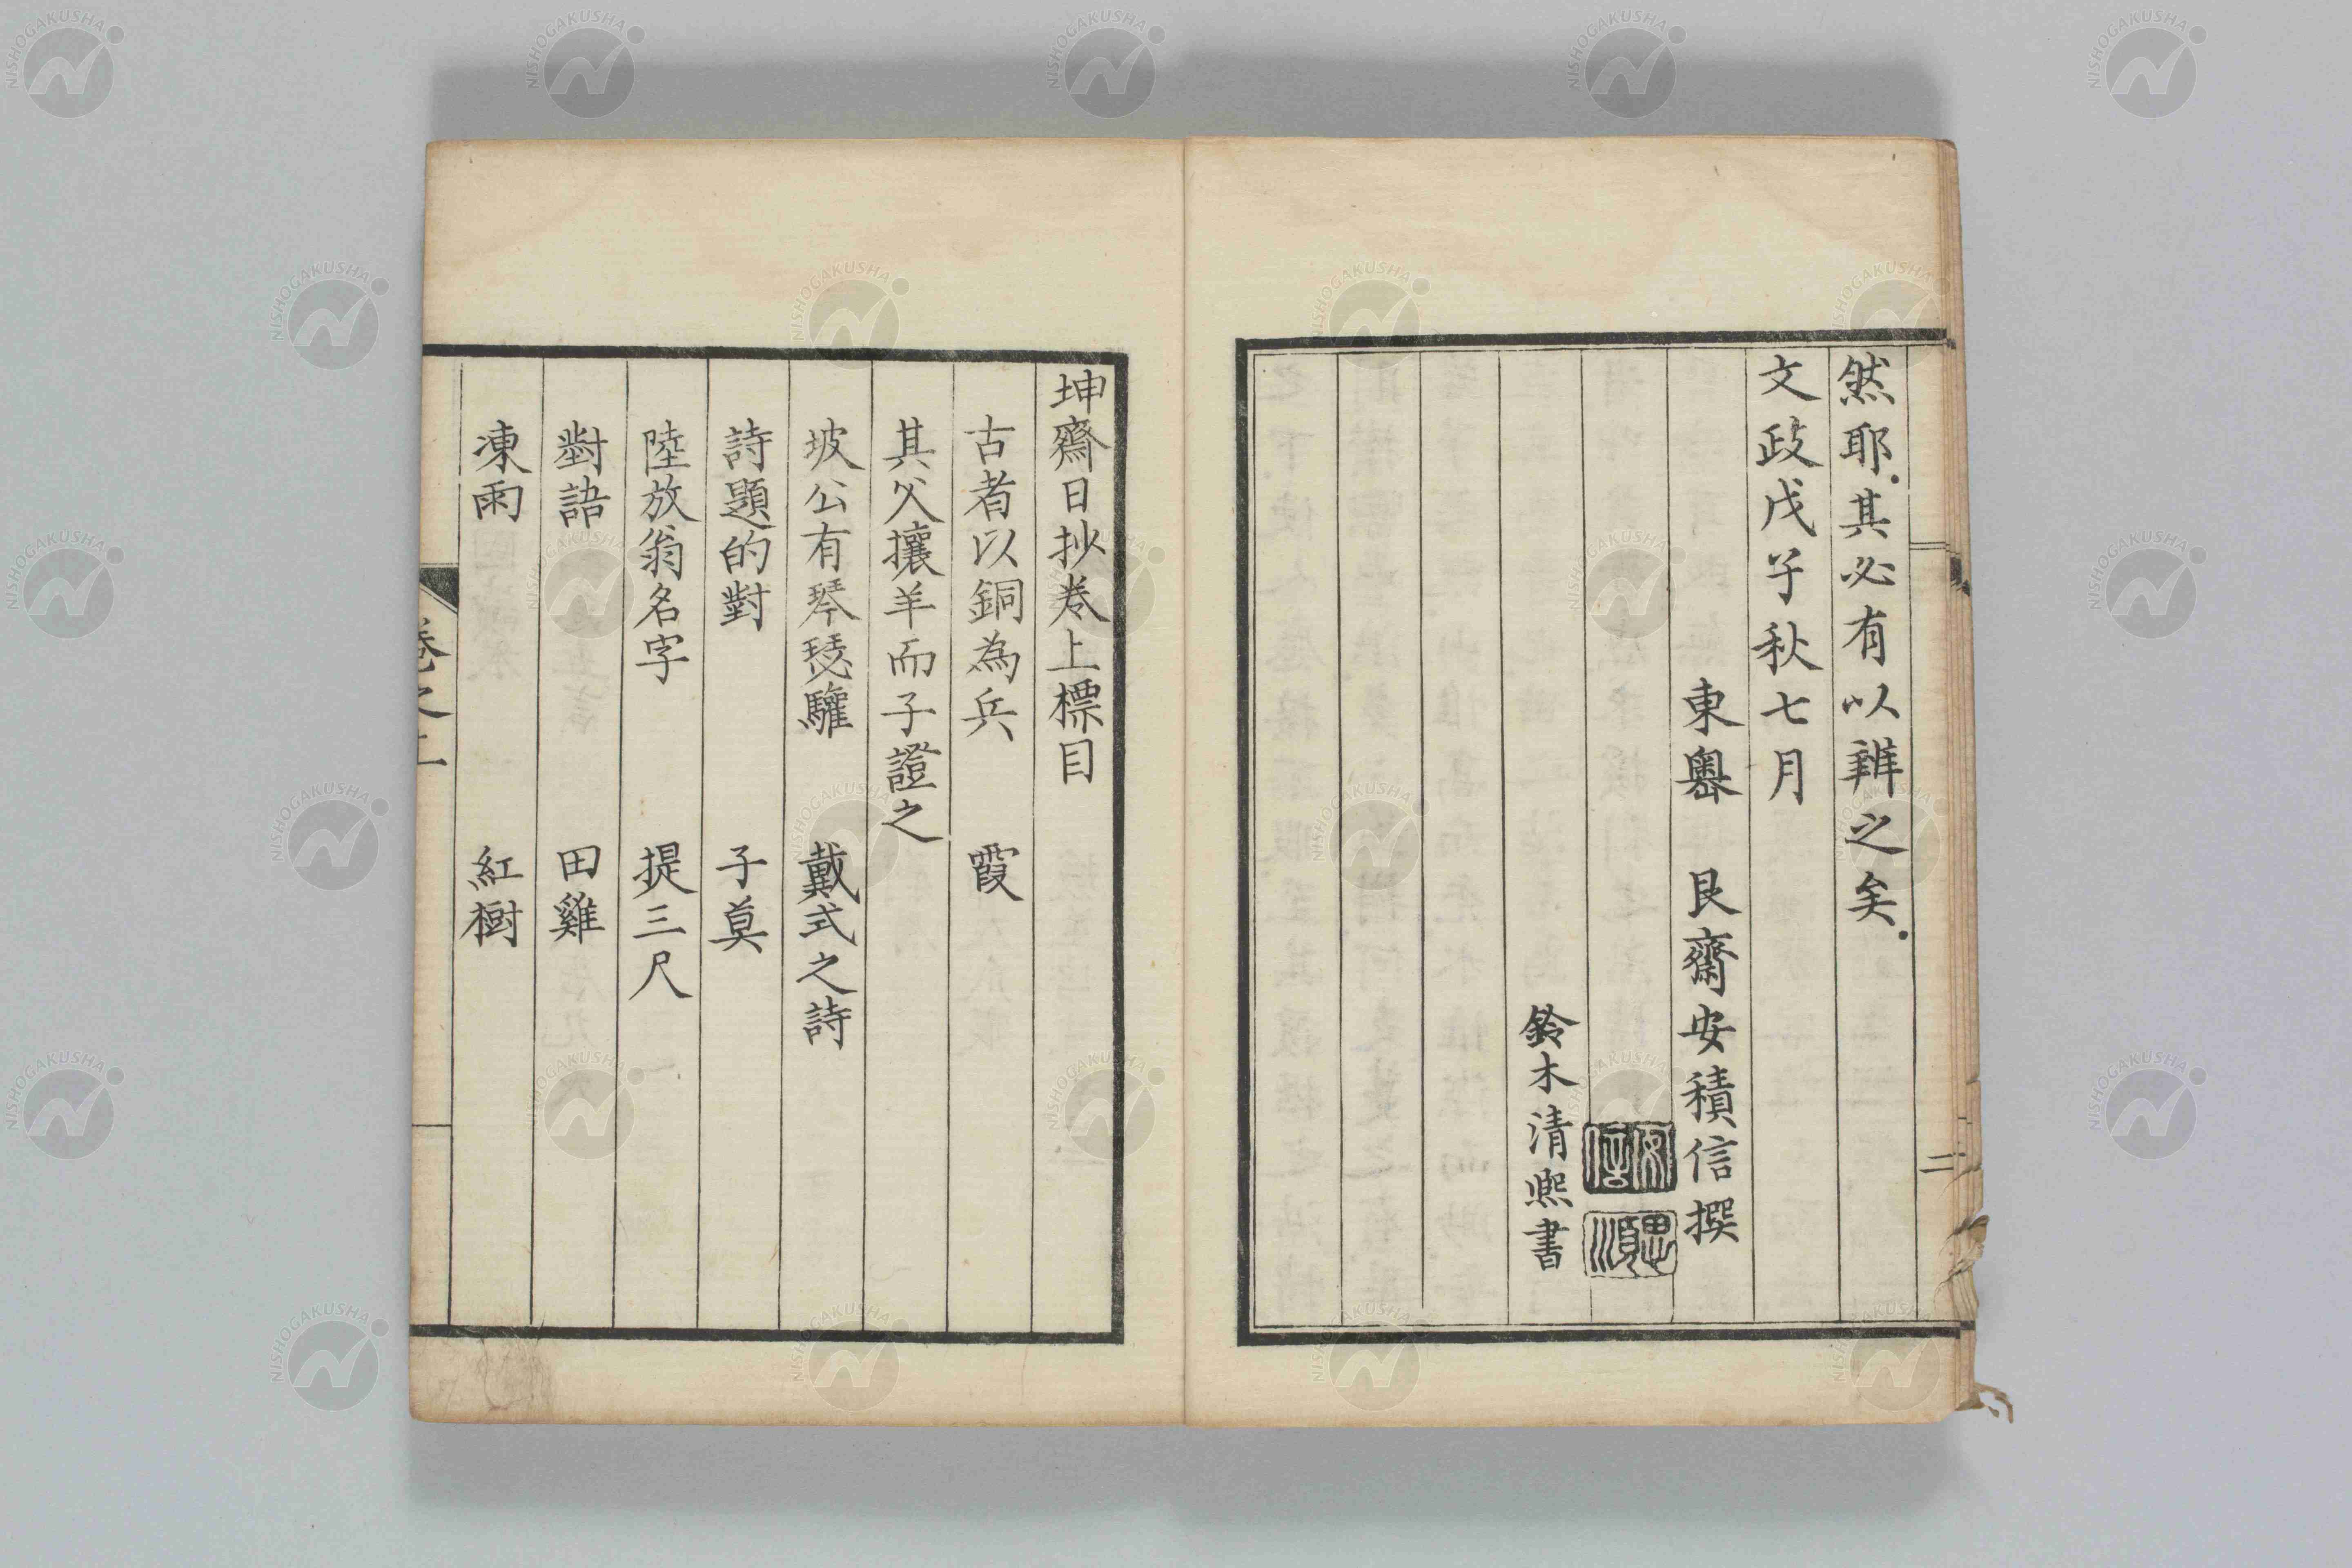 然耶其必有以辨之矣
文政戊子秋七月
東奧 艮齋安積信撰
安積信
思順
鈴木清熙書
二
坤齋日抄卷上標目
古者以銅為兵 霞
其父攘羊而子證之
坡公有琴瑟驢 戴式之詩
詩題的對 子莫
陸放翁名字 提三尺
對語 田雞
凍雨 紅樹
卷之上
NISHOGAKUSHA